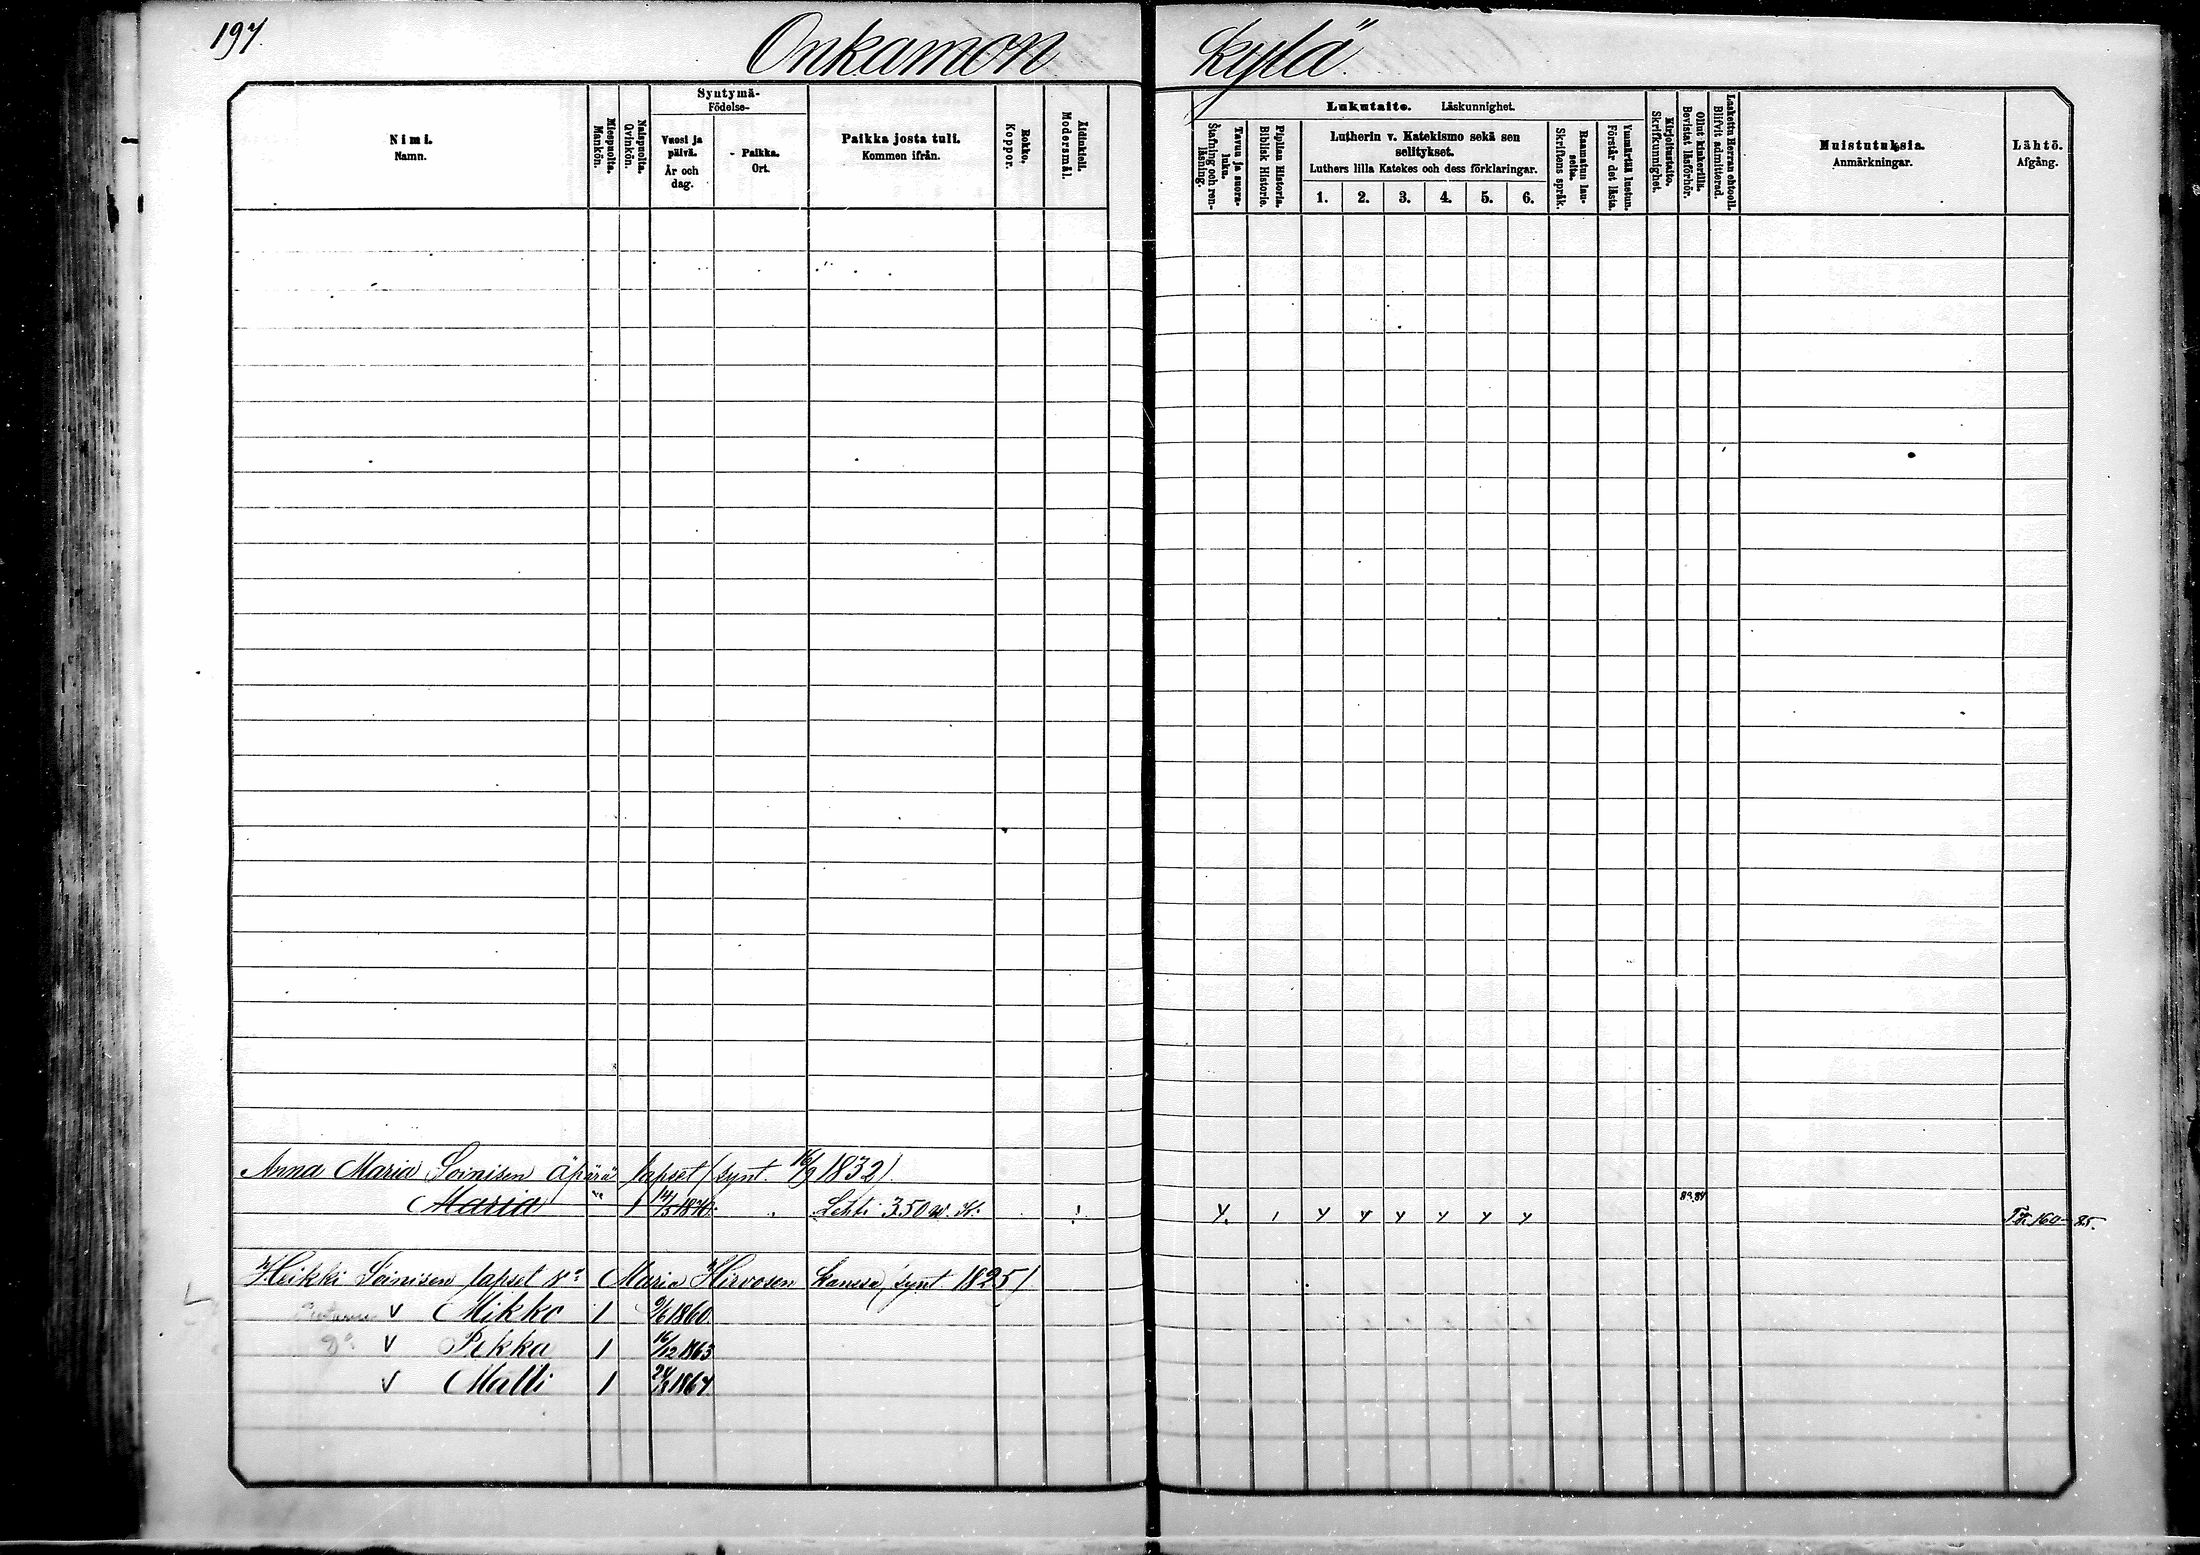 197.
Onkamon kylä.
Nimi. Namn.
Miespuolia. Mankön.
Naispuolia. Qvinkön.
Syntymä- Födelse-
Vuosi ja päivä. År och dag.
Paikka. Ort.
Paikka josta tuli. Kommen ifrån.
Rokko. Koppor.
Äidinkieli. Modersmål.
Lukutaito. Läskunnighet.
Tavuu ja suora- luku. Stafning och ren- läsning.
Piplian Historia. Biblisk Historie.
Lutherin v. Katekismo sekä sen selitykset.
Luthers lilla Katekes och dess förklaringar.
1. 2. 3. 4. 5. 6.
Raamatun lau- seita. Skriftens språk.
Ymmärtää luetun. Förstår det lästa.
Kirjoitustaito. Skrifkunnighet.
Ollut kinkerillä. Bevistat läsförhör.
Laskettu Herran ehtooll. Blifvit admitterad.
Muistutuksia. Anmärkningar.
Lähtö. Afgång.
Anna Maria Soinisen äpärä lapset (synt. 16/9 1832)
Maria 1 14/3 1870. Lehti 350 w. k. 83.84 160-85.
Heikki Soinisen lapset Maria Hirvosen kanssa, synt. 1825)
v Mikko 1 9/6 1860.
Do v Pekka 1 16/12 1863
v Matti 1 1867